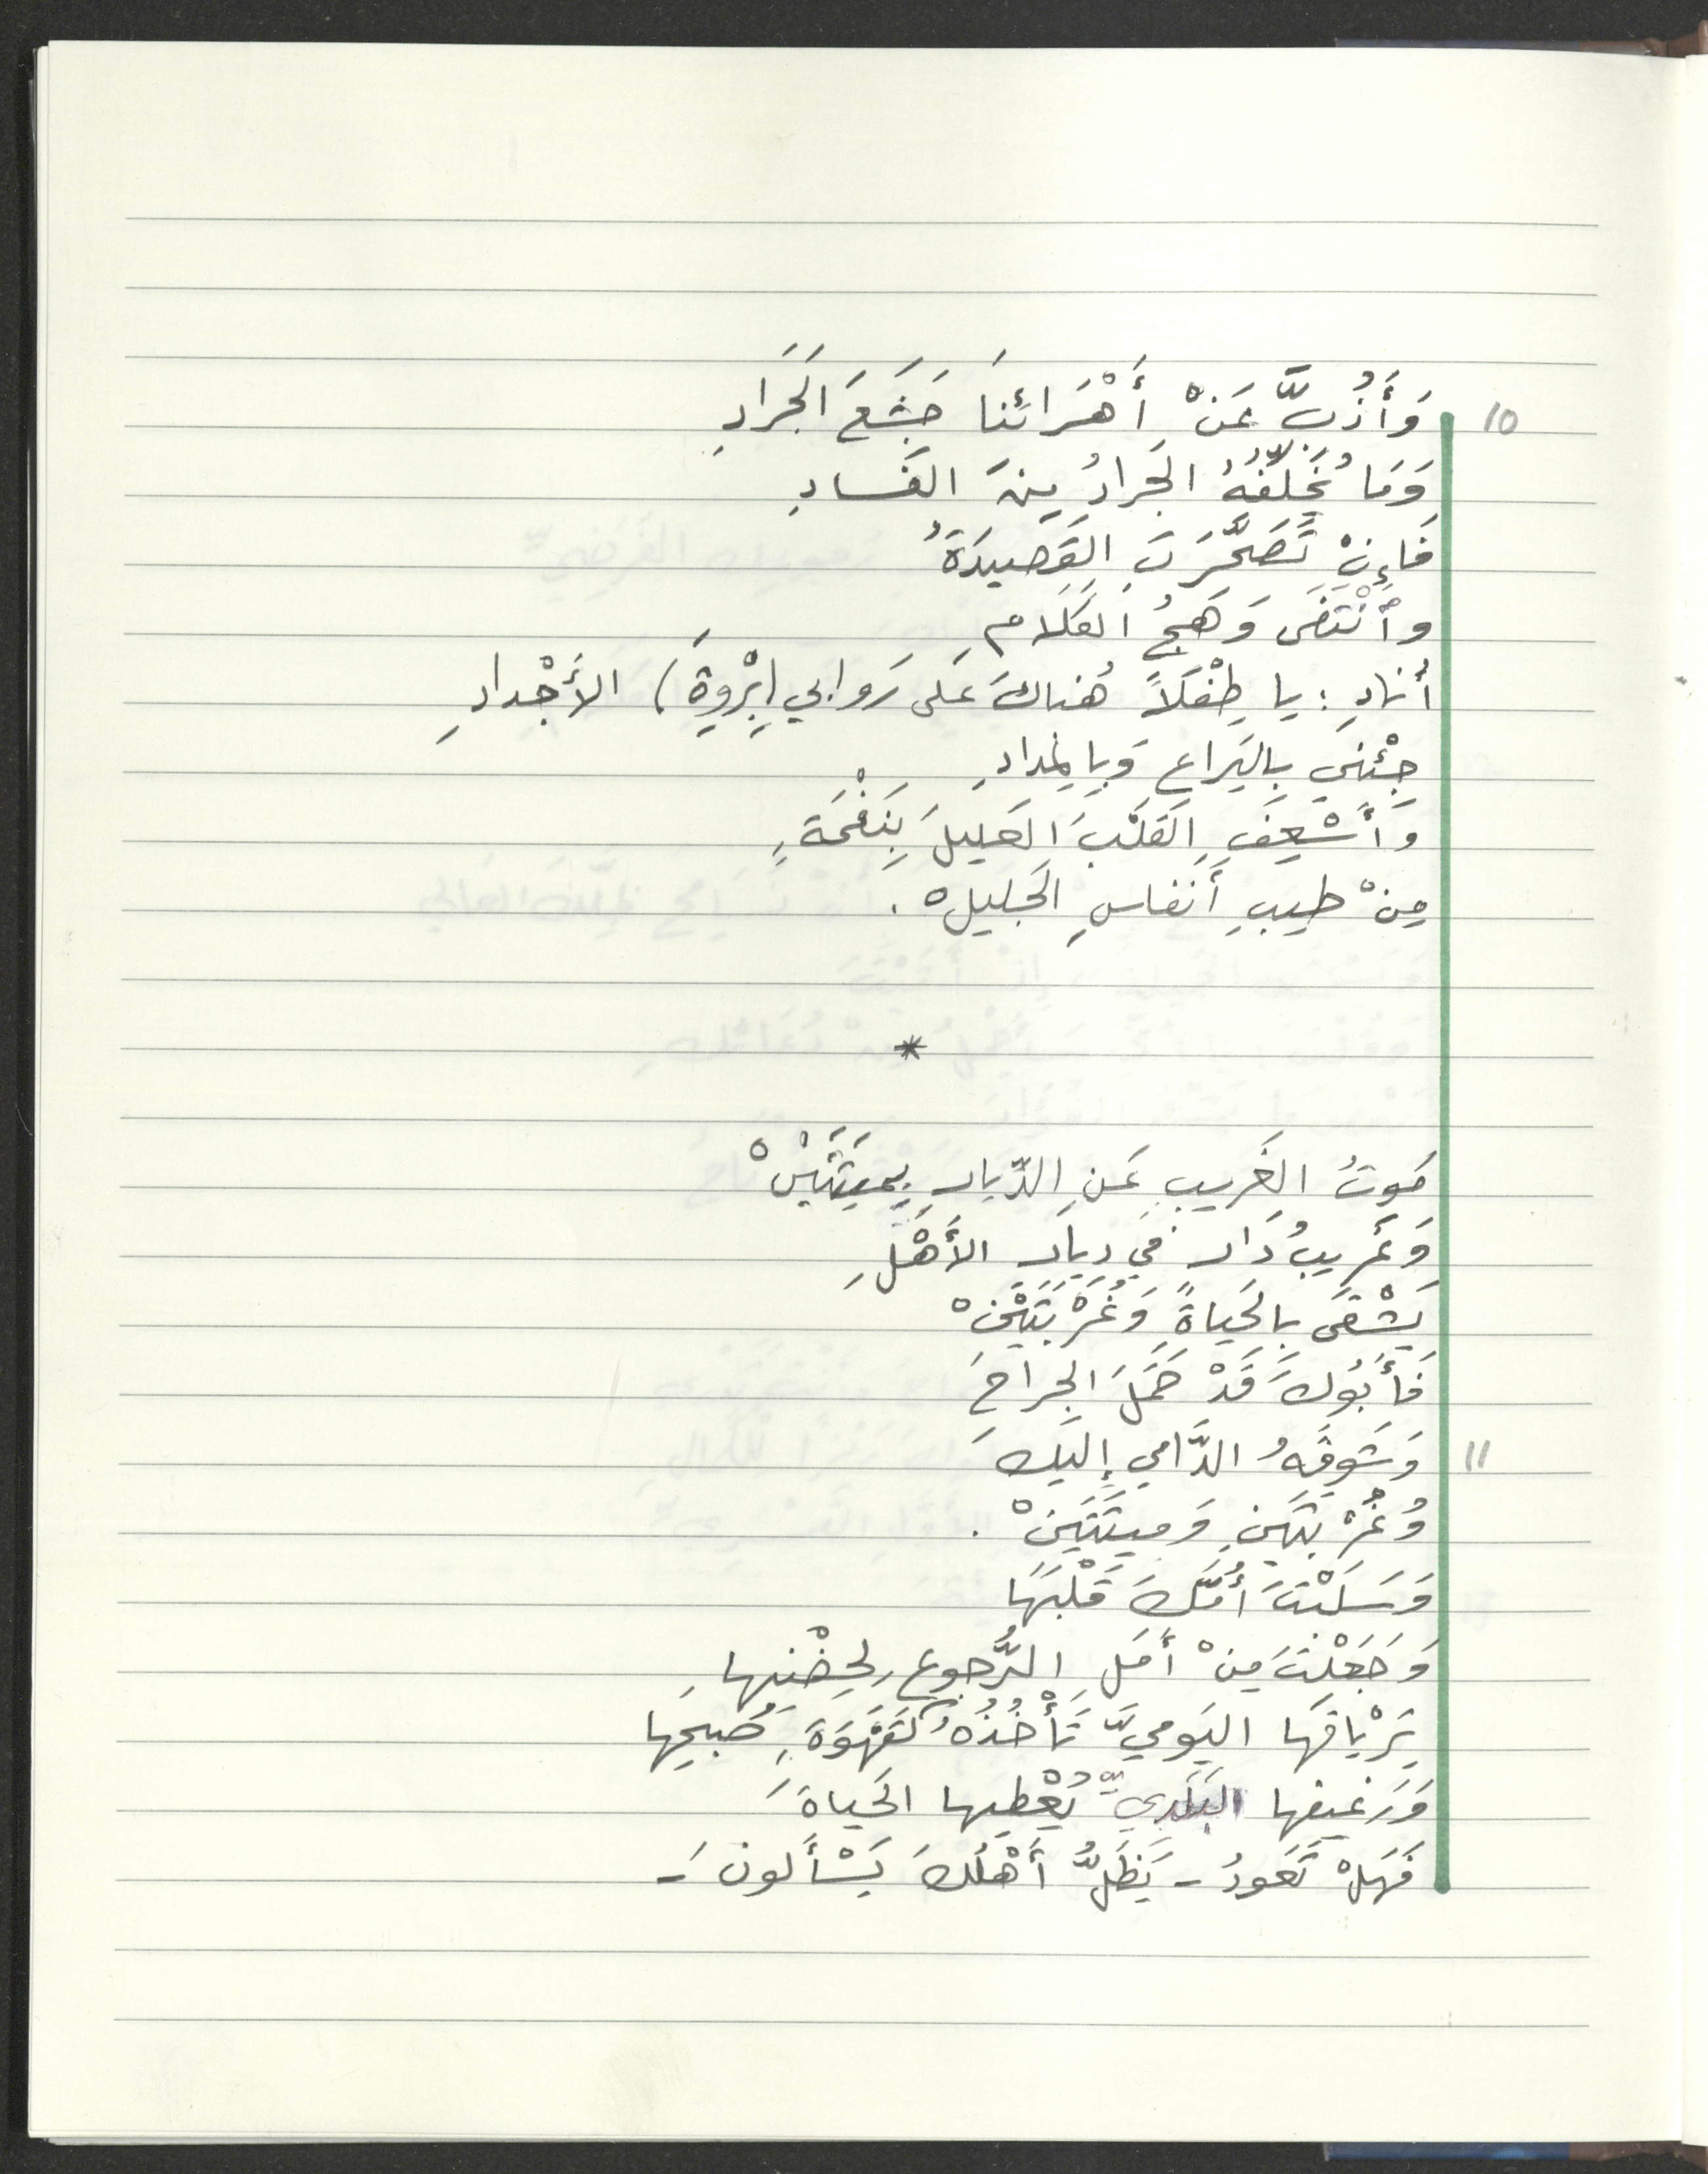 10 وَأَذُبُّ عَنْ أَهْرَائِنَا جَشَعَ الجَرَادِ
وَمَا يُخَلِّفُهُ الجَرادُ مِنَ الفَسادِ
فَإِنْ تَصَحَّرَتِ القَصيدَةُ
وانْتَضَى وَهَجُ الكَلامِ
أُنادِ : يا طِفْلاً هُناكَ عَلى رَوابي (بِرْوِةِ) الأَجْدادِ
جِئْني بِاليَراعِ وَبِالمِدادِ
وَأَسْعِفِ القَلْبَ العَليلَ بِنَغْمَةٍ
مِنْ طيبِ أَنفاسِ الجَليلْ .
*
مَوتُ الغَريبِ عَنِ الدِّيارِ بِميتَتَيْنْ
وَغَريبُ دَارٍ في دِيارِ الأَهْلِ
يَشْقَى بِالحَياةِ وَغُرْبَتَيْنْ
فَأَبُوكَ قَدْ حَمَلَ الجِراحَ
11 وَشَوقَهُ الدَّامي إِلَيكَ
وَغُرْبَتَينِ وَميتَتَينْ .
وَسَلَبْتَ أُمَّكَ قَلْبَهَا
وَجَعَلْتَ مِنْ أَمَلِ الرُّجوعِ لِحِضْنِها
تِرْياقَها اليَوميَّ تَأْخُذُهُ كَقَهْوَةِ صُبحِها
وَرَغيفِها البَلَديِّ يُعْطيها الحَياةَ
فَهَلْ تَعودُ - يَظَلُّ أَهْلُكَ يَسْأَلونَ -